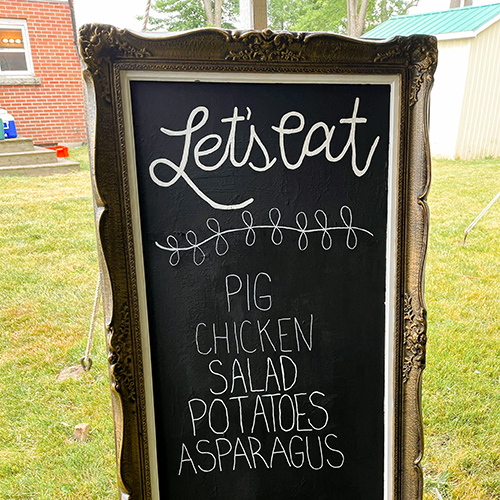 Let's eat
PIG
CHICKEN
SALAD
POTATOES
ASPARAGUS